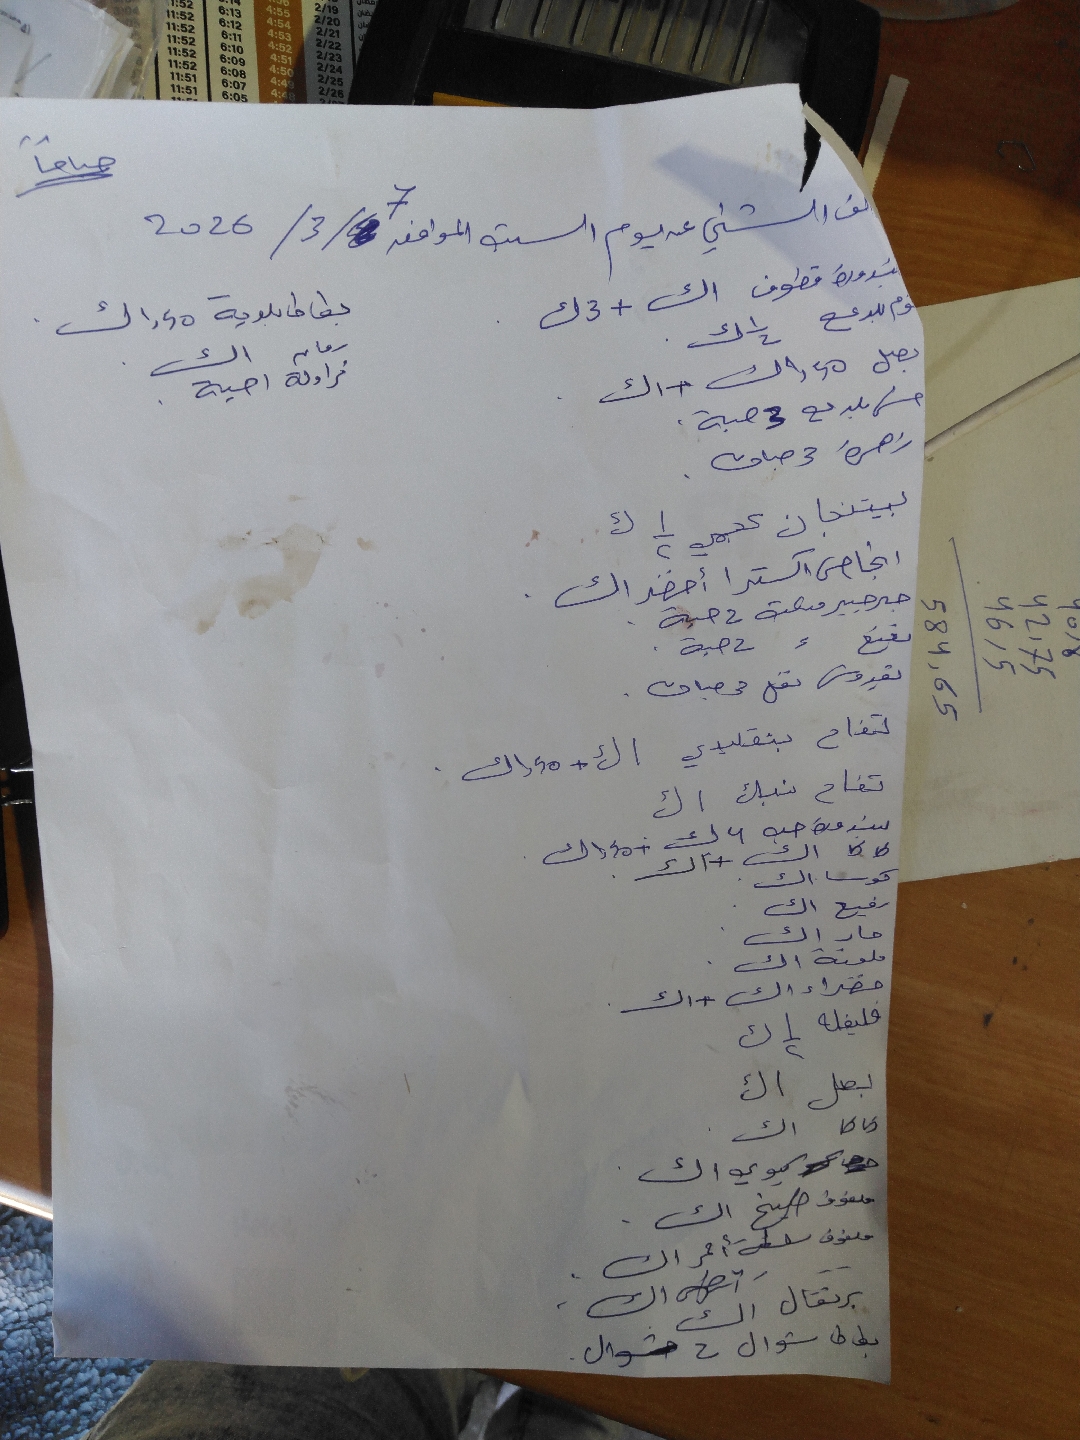 صباحاً
الشتلي عن يوم السبت الموافق 7/3/2026
بندورة قطوف 1ك + 3ك
ثوم بلدي ½ 1ك
بصل 1,50ك + 1ك
خس بلدي 3 حبة
زهرة 3 حبات
بيتنجان عجمي ½ ك
انجاص اكسترا أخضر 1ك
جرجير 2 حبة
نعنع " 2 حبة
بقدونس 3 حبات
تفاح 1ك + 1,50ك
تفاح 1ك
بندورة حبه 4ك + 1,50ك
كاكا 1ك + 1ك
كوسا 1ك
رفيع 1ك
حار 1ك
ملونة 1ك
خضراء 1ك + 1ك
فليفله ½ ك
بصل 1ك
كاكا 1ك
كيوي 1ك
ملفوف 1ك
ملفوف سلطة أحمر 1ك
1ك
برتقال 1ك
بطاطا شوال 2 شوال
بطاطا بلدية 1,50ك
رمان 1ك
فراولة 1 حبة
40,8
42,75
46,5
584,65
11:52 6:14
11:52 6:13 4:55 2/19
11:52 6:12 4:54 2/20
11:52 6:11 4:53 2/21
11:52 6:10 4:52 2/22
11:52 6:09 4:51 2/23
11:52 6:08 4:50 2/24
11:51 6:07 4:49 2/25
11:51 6:05 4:48 2/26